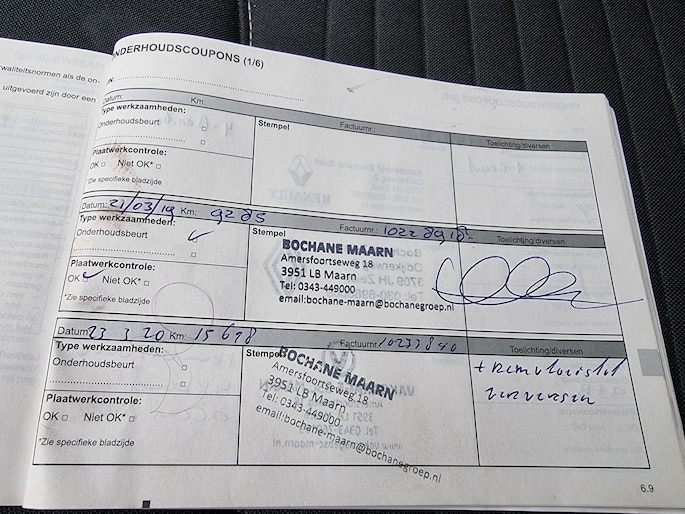 waliteitsnormen als de on-
uitgevoerd zijn door een
ONDERHOUDSCOUPONS (1/6)
Datum: Km:
Type werkzaamheden:
Onderhoudsbeurt
Plaatwerkcontrole:
OK Niet OK*
*Zie specifieke bladzijde
Stempel
Factuurnr.
Toelichting/diversen
Datum: 21/03/19 Km:
Type werkzaamheden:
Onderhoudsbeurt
Plaatwerkcontrole:
OK Niet OK*
*Zie specifieke bladzijde
Stempel
Factuurnr.
Toelichting/diversen
BOCHANE MAARN
Amersfoortseweg 18
3951 LB Maarn
Tel: 0343-449000
email:bochane-maarn@bochanegroep.nl
Datum 23 3 20 Km: 15698
Type werkzaamheden:
Onderhoudsbeurt
Plaatwerkcontrole:
OK Niet OK*
*Zie specifieke bladzijde
Stempel
Factuurnr. 10277840
Toelichting/diversen
BOCHANE MAARN
Amersfoortseweg 18
3951 LB Maarn
Tel: 0343-449000
email:bochane-maarn@bochanegroep.nl
+ Remvloeistof
verversen
6.9